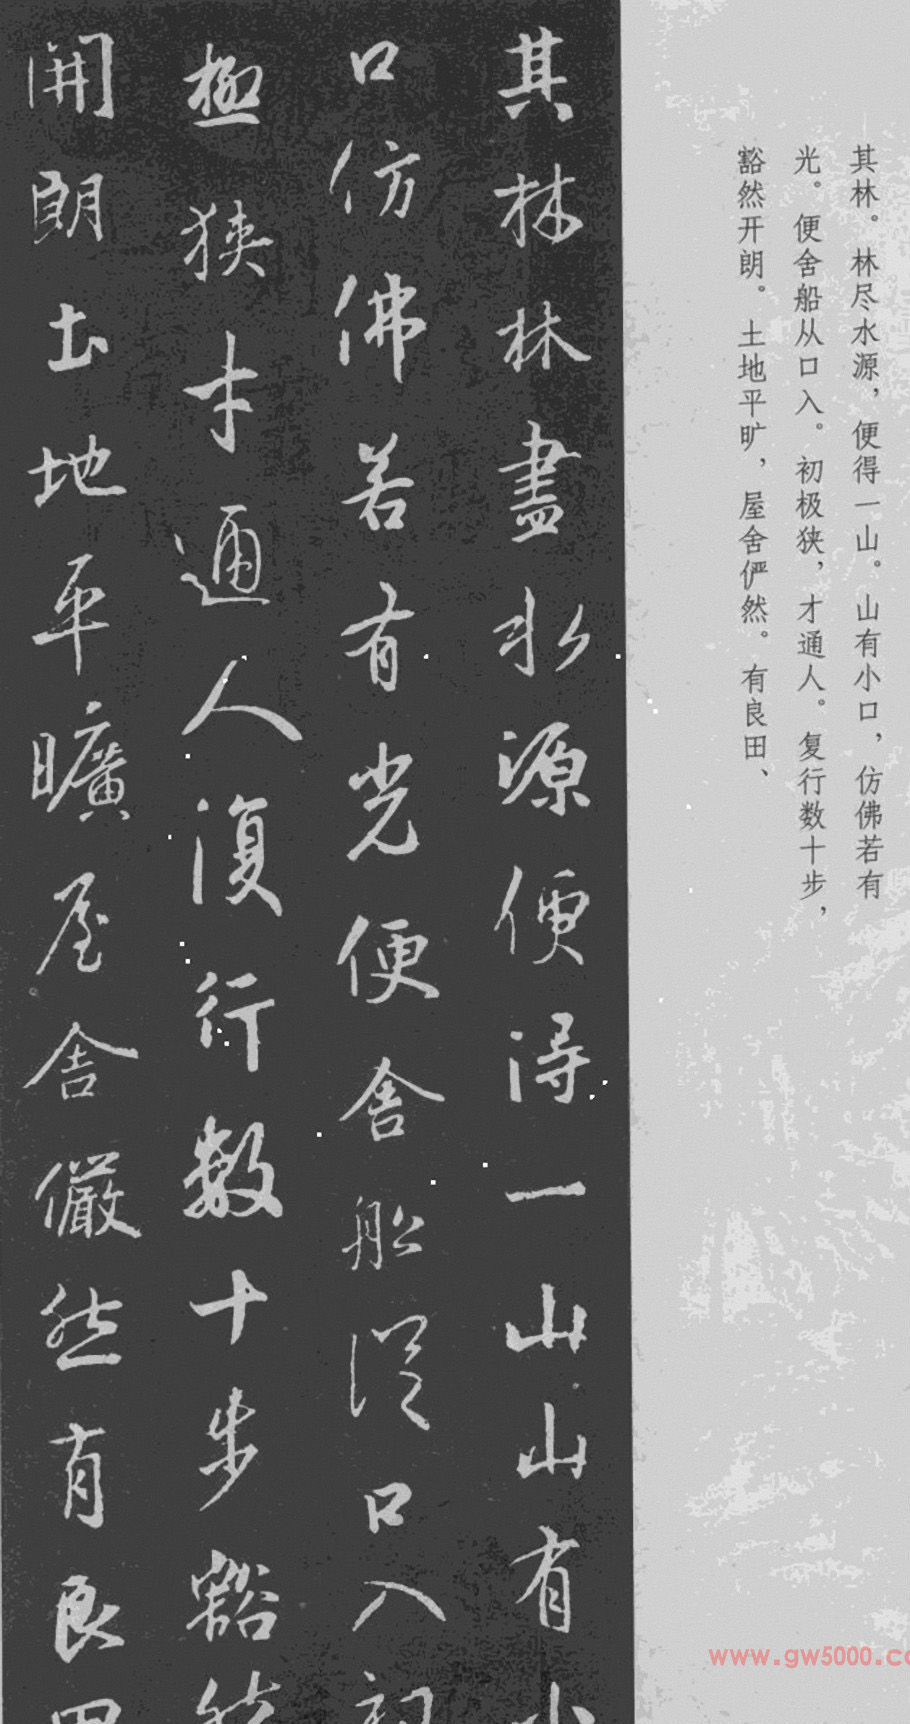 其林。林尽水源，便得一山。山有小口，仿佛若有
光。便舍船从口入。初极狭，才通人。复行数十步，
豁然开朗。土地平旷，屋舍俨然。有良田、
其林林盡水源便得一山山有小
口仿佛若有光便舍船從口入初
極狭才通人復行數十步豁然
開朗土地平曠屋舍儼然有良田
www.gw5000.co